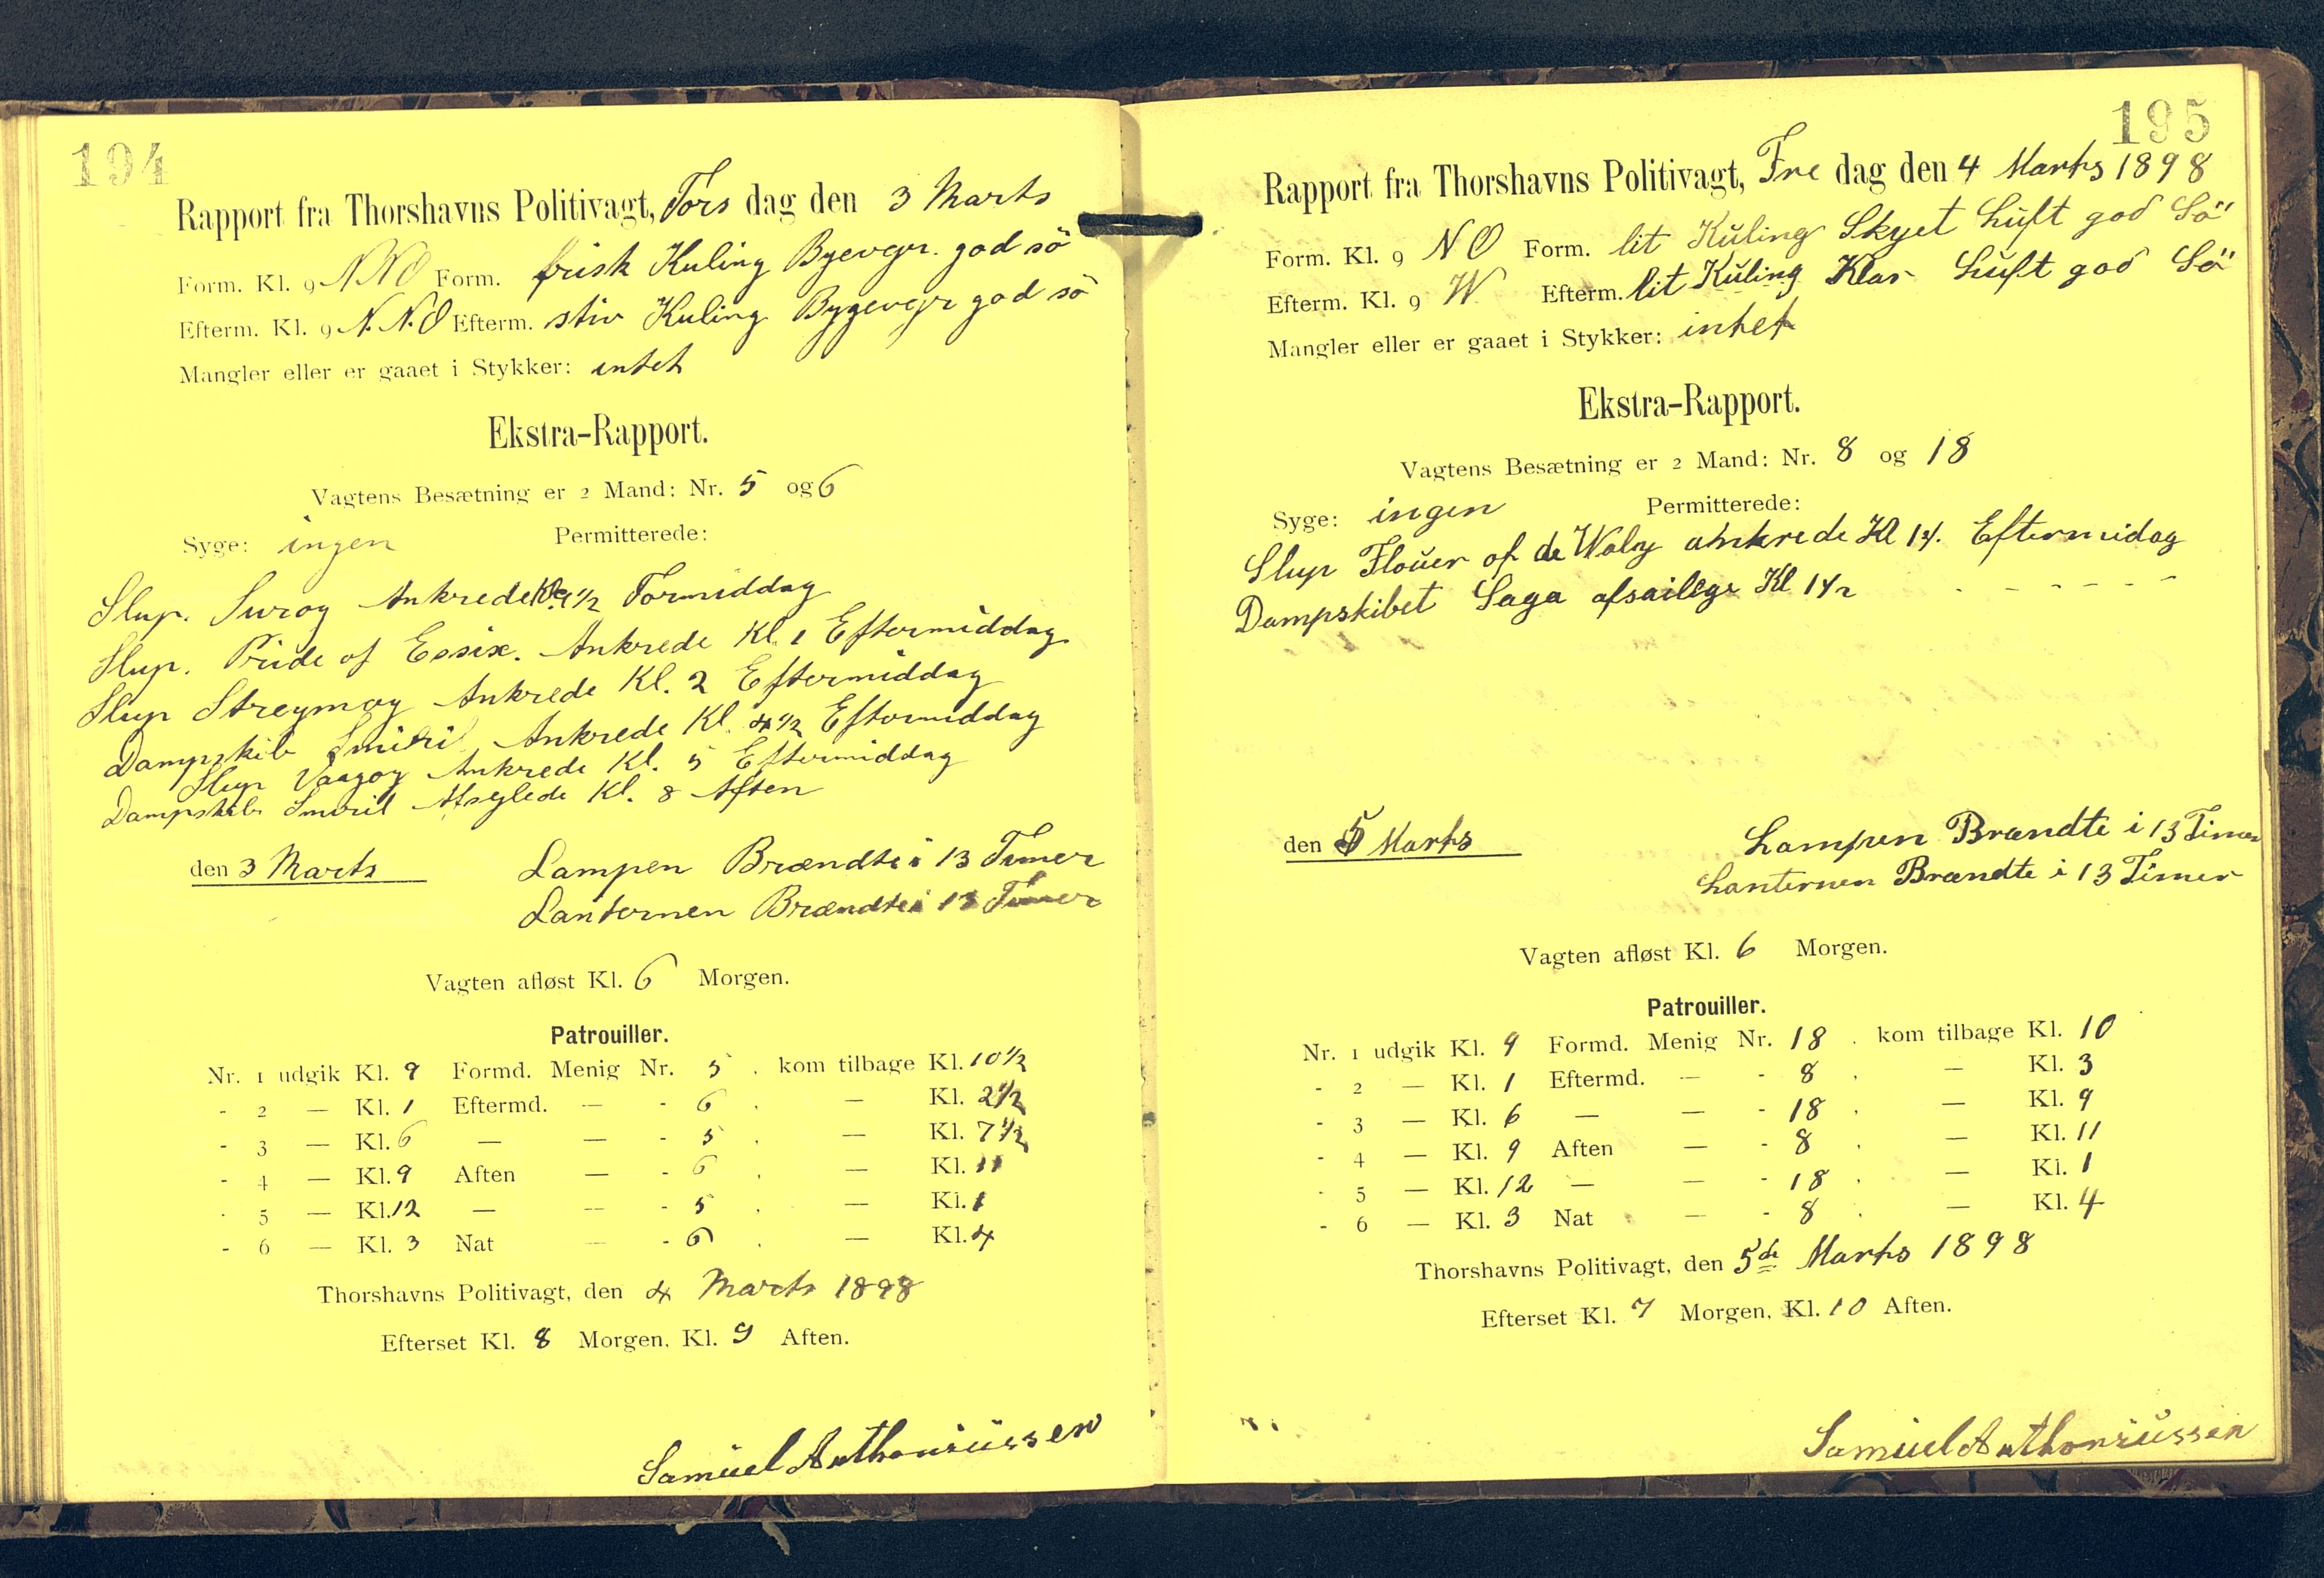 194
Rapport fra Thorshavns Politivagt, Tors dag den 3 Marts
Form. Kl. 9 NNO Form. frisk Kuling Byevejr. god sö
Efterm. Kl. 9 N.N.O Efterm. stiv Kuling Bygevejr god sö
Mangler eller er gaaet i Stykker: intet
Ekstra-Rapport.
Vagtens Besætning er 2 Mand: Nr. 5 og 6
Syge: ingen Permitterede:
Slup. Suroy Ankrede Kl. 9 1/2 Formiddag
Slup. Pride of Essix. Ankrede Kl. 1 Eftermiddag
Slup Streymoy Ankrede Kl. 2 Eftermiddag
Dampskib Smiril Ankrede Kl. 4 1/2 Eftermiddag
Slup Vaagoy Ankrede Kl. 5 Eftermiddag
Dampskib Smiril Afseylede Kl. 8 Aften
den 3 Marts Lampen Brændte i 13 Timer
Lanternen Brændte i 13 Timer
Vagten afløst Kl. 6 Morgen.
Patrouiller.
Nr. 1 udgik Kl. 9 Formd. Menig Nr. 5 . kom tilbage Kl. 10 1/2
- 2 — Kl. 1 Eftermd. — - 6 . — Kl. 2 1/2
- 3 — Kl. 6 — — - 5 . — Kl. 7 1/2
- 4 — Kl. 9 Aften — - 6 . — Kl. 11
- 5 — Kl. 12 — — - 5 . — Kl. 1
- 6 — Kl. 3 Nat — - 6 . — Kl. 4
Thorshavns Politivagt, den 4 Marts 1898
Efterset Kl. 8 Morgen, Kl. 9 Aften.
Samuel Anthoniussen
195
Rapport fra Thorshavns Politivagt, Fre dag den 4 Marts 1898
Form. Kl. 9 NO Form. lit Kuling Skyet Luft god Sö
Efterm. Kl. 9 W Efterm. lit Kuling Klar Luft god Sö
Mangler eller er gaaet i Stykker: intet
Ekstra-Rapport.
Vagtens Besætning er 2 Mand: Nr. 8 og 18
Syge: ingen Permitterede:
Slup Flouer of de Waly ankrede Kl Eftermidag
Dampskibet Saga afsailege Kl - - - - -
den 5 Marts Lampen Brændte i 13 Timer
Lanternen Brændte i 13 Timer
Vagten afløst Kl. 6 Morgen.
Patrouiller.
Nr. 1 udgik Kl. 9 Formd. Menig Nr. 18 . kom tilbage Kl. 10
- 2 — Kl. 1 Eftermd. — - 8 . — Kl. 3
- 3 — Kl. 6 — — - 18 . — Kl. 9
- 4 — Kl. 9 Aften — - 8 . — Kl. 11
- 5 — Kl. 12 — — - 18 . — Kl. 1
- 6 — Kl. 3 Nat — - 8 . — Kl. 4
Thorshavns Politivagt, den 5de Marts 1898
Efterset Kl. 7 Morgen, Kl. 10 Aften.
Samuel Anthoniussen